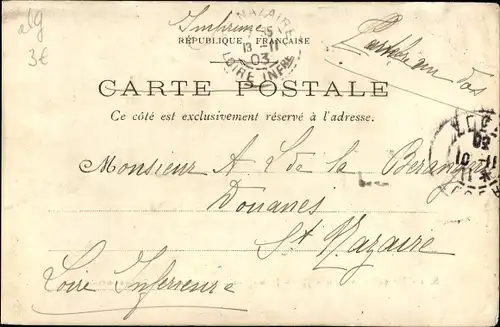 alg
3€
Imprimé
NAZAIRE
13 11
03
LOIRE INFRE
RÉPUBLIQUE FRANÇAISE
CARTE POSTALE
Ce côté est exclusivement réservé à l'adresse.
Monsieur A L de la
Douanes
St Nazaire
Loire Inferieure